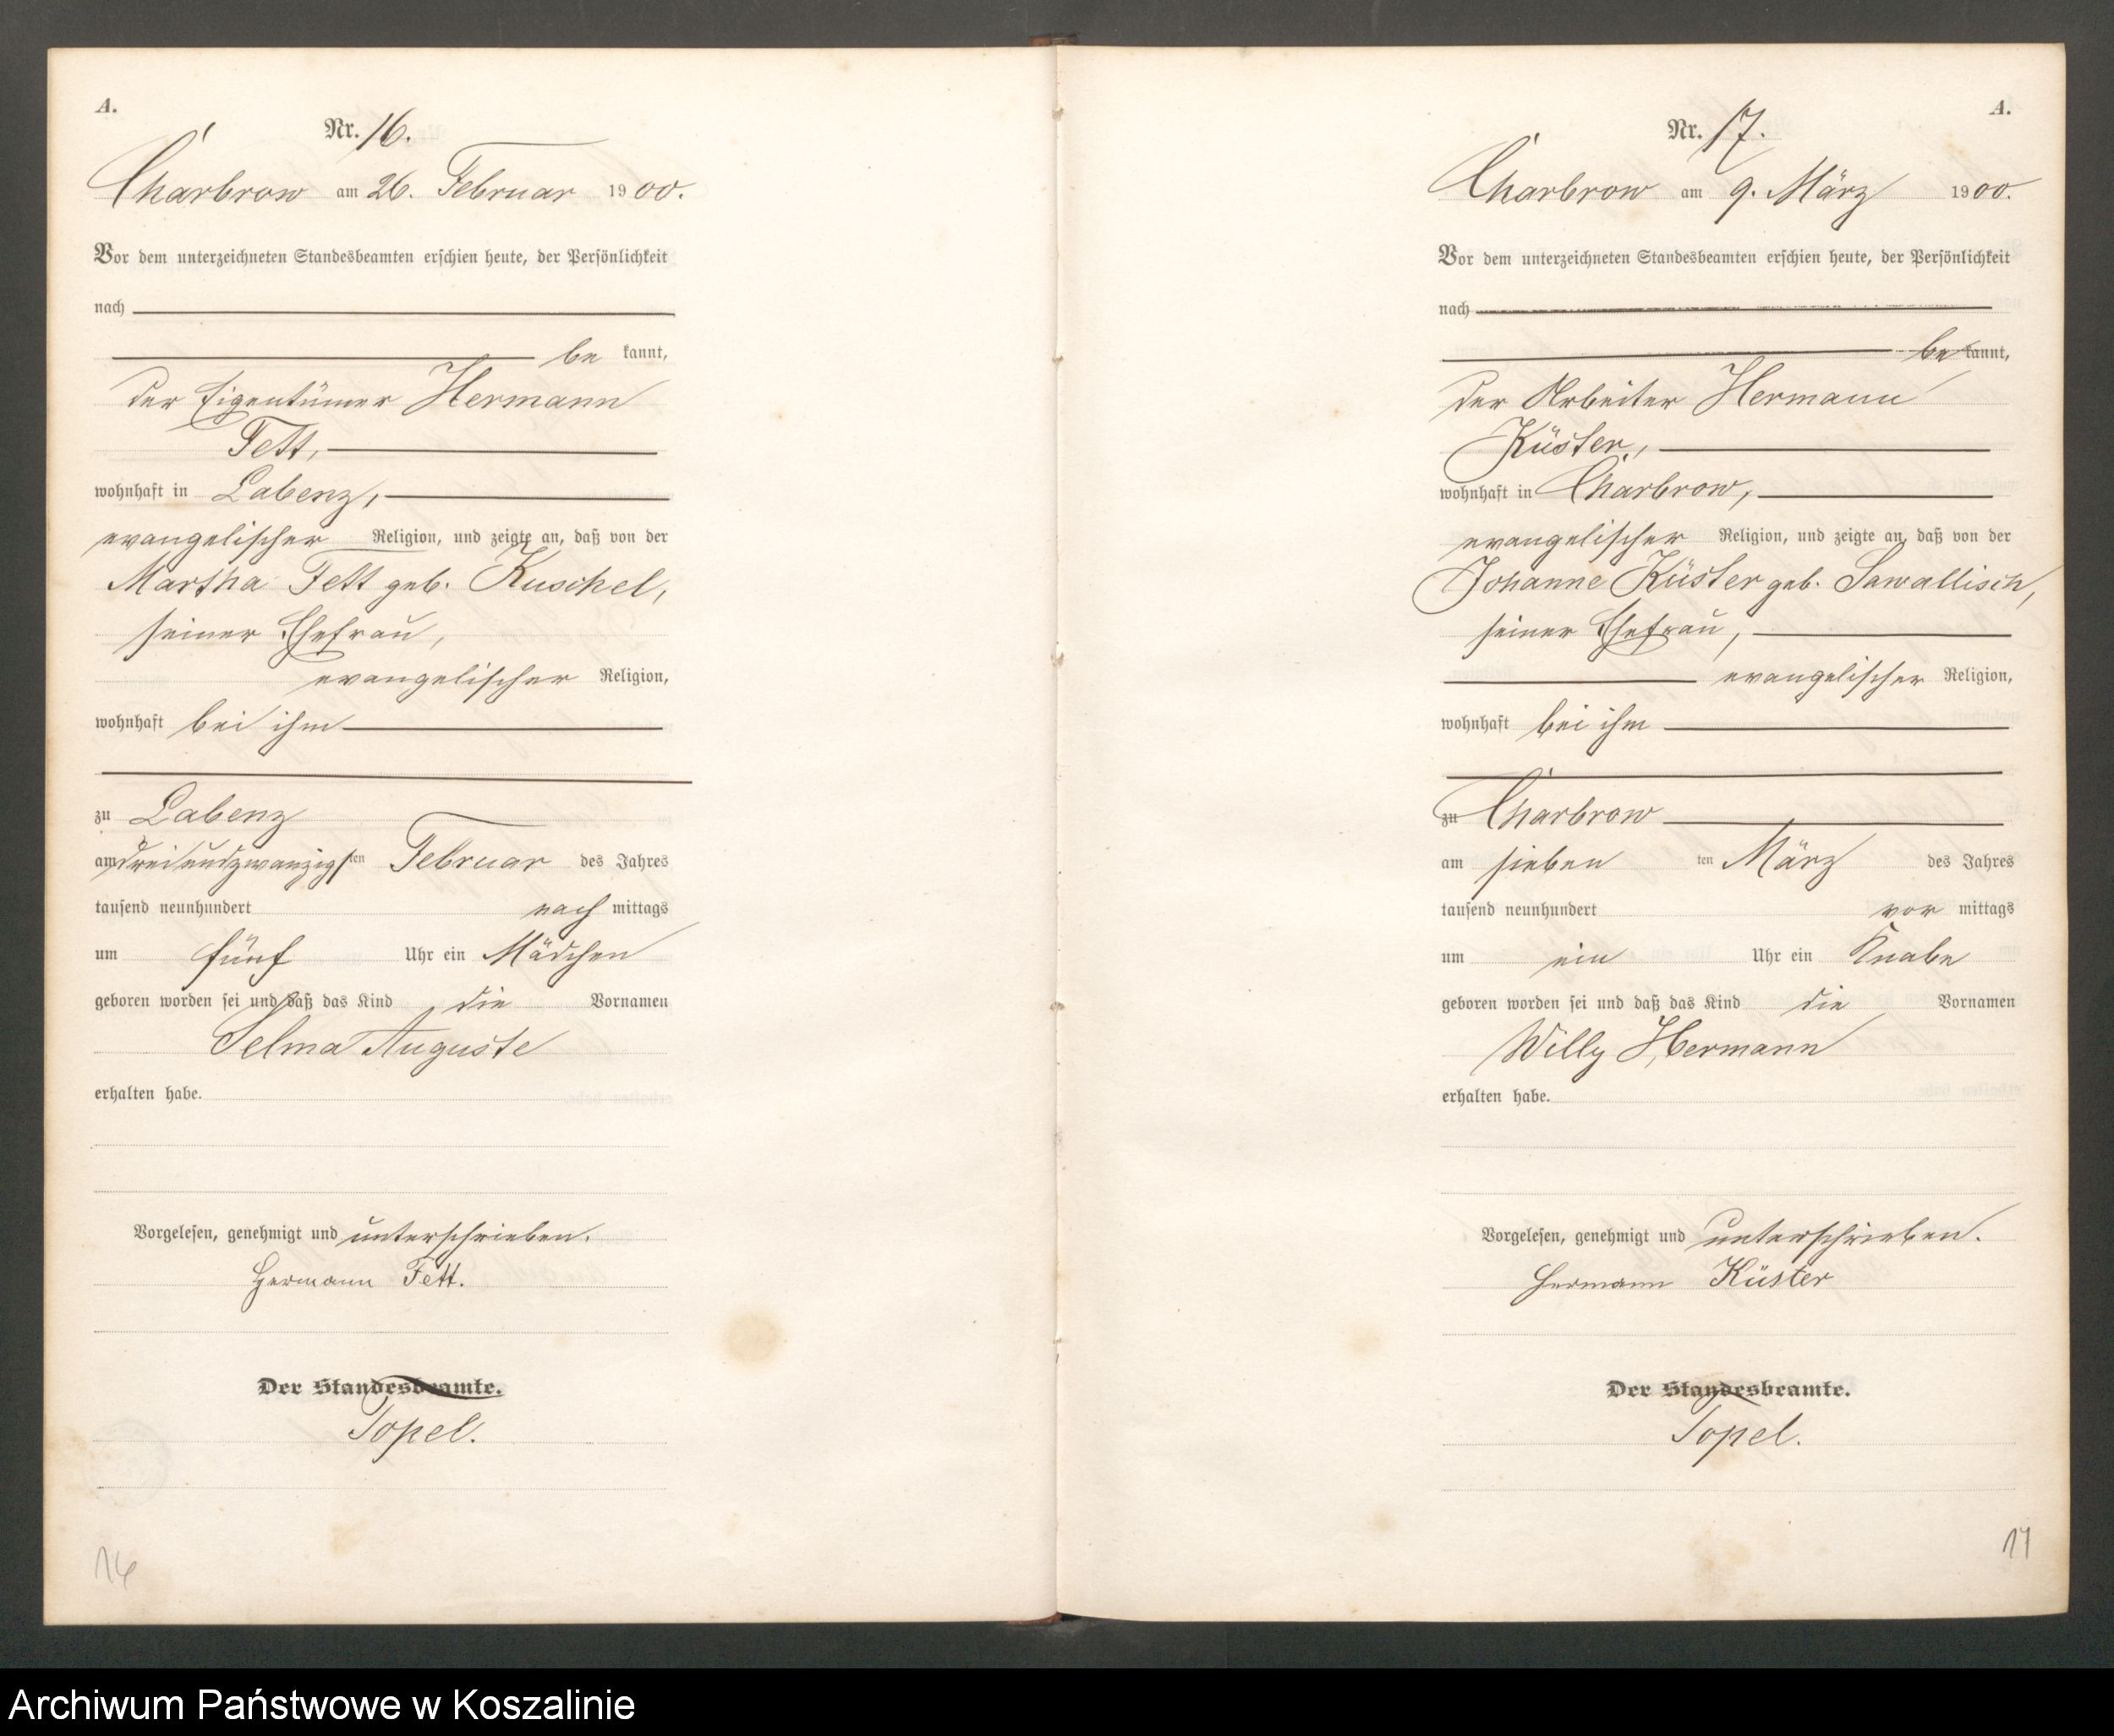 A.
Nr. 16.
Charbrow am 26. Februar 1900.
Vor dem unterzeichneten Standesbeamten erschien heute, der Persönlichkeit
nach
be kannt,
der Eigentümer Hermann
Fett,
wohnhaft in Labenz,
evangelischer Religion, und zeigte an, daß von der
Martha Fett geb. Kuschel,
seiner Ehefrau,
evangelischer Religion,
wohnhaft bei ihm
zu Labenz
am dreiundzwanzigsten Februar des Jahres
tausend neunhundert nach mittags
um fünf Uhr ein Mädchen
geboren worden sei und daß das Kind die Vornamen
Selma Auguste
erhalten habe.
Vorgelesen, genehmigt und unterschrieben.
Hermann Fett.
Der Standesbeamte.
Topel.
16
A.
Nr. 17.
Charbrow am 9. März 1900.
Vor dem unterzeichneten Standesbeamten erschien heute, der Persönlichkeit
nach
be kannt,
der Arbeiter Hermann
Küster,
wohnhaft in Charbrow,
evangelischer Religion, und zeigte an, daß von der
Johanne Küster geb. Sawallisch,
seiner Ehefrau,
evangelischer Religion,
wohnhaft bei ihm
zu Charbrow
am sieben ten März des Jahres
tausend neunhundert vor mittags
um ein Uhr ein Knabe
geboren worden sei und daß das Kind die Vornamen
Willy Hermann
erhalten habe.
Vorgelesen, genehmigt und unterschrieben.
Hermann Küster
Der Standesbeamte.
Topel.
17
Archiwum Państwowe w Koszalinie